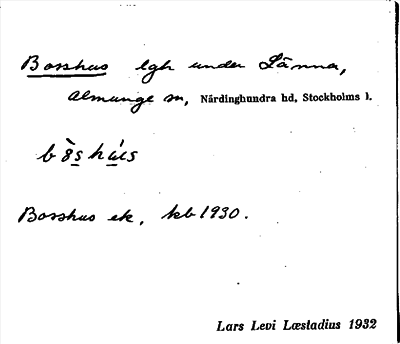 Bosshus lgh under Länna,
Almunge sn, Närdinghundra hd, Stockholms l.
Bosshus ek, kb 1930.
Lars Levi Læstadius 1932